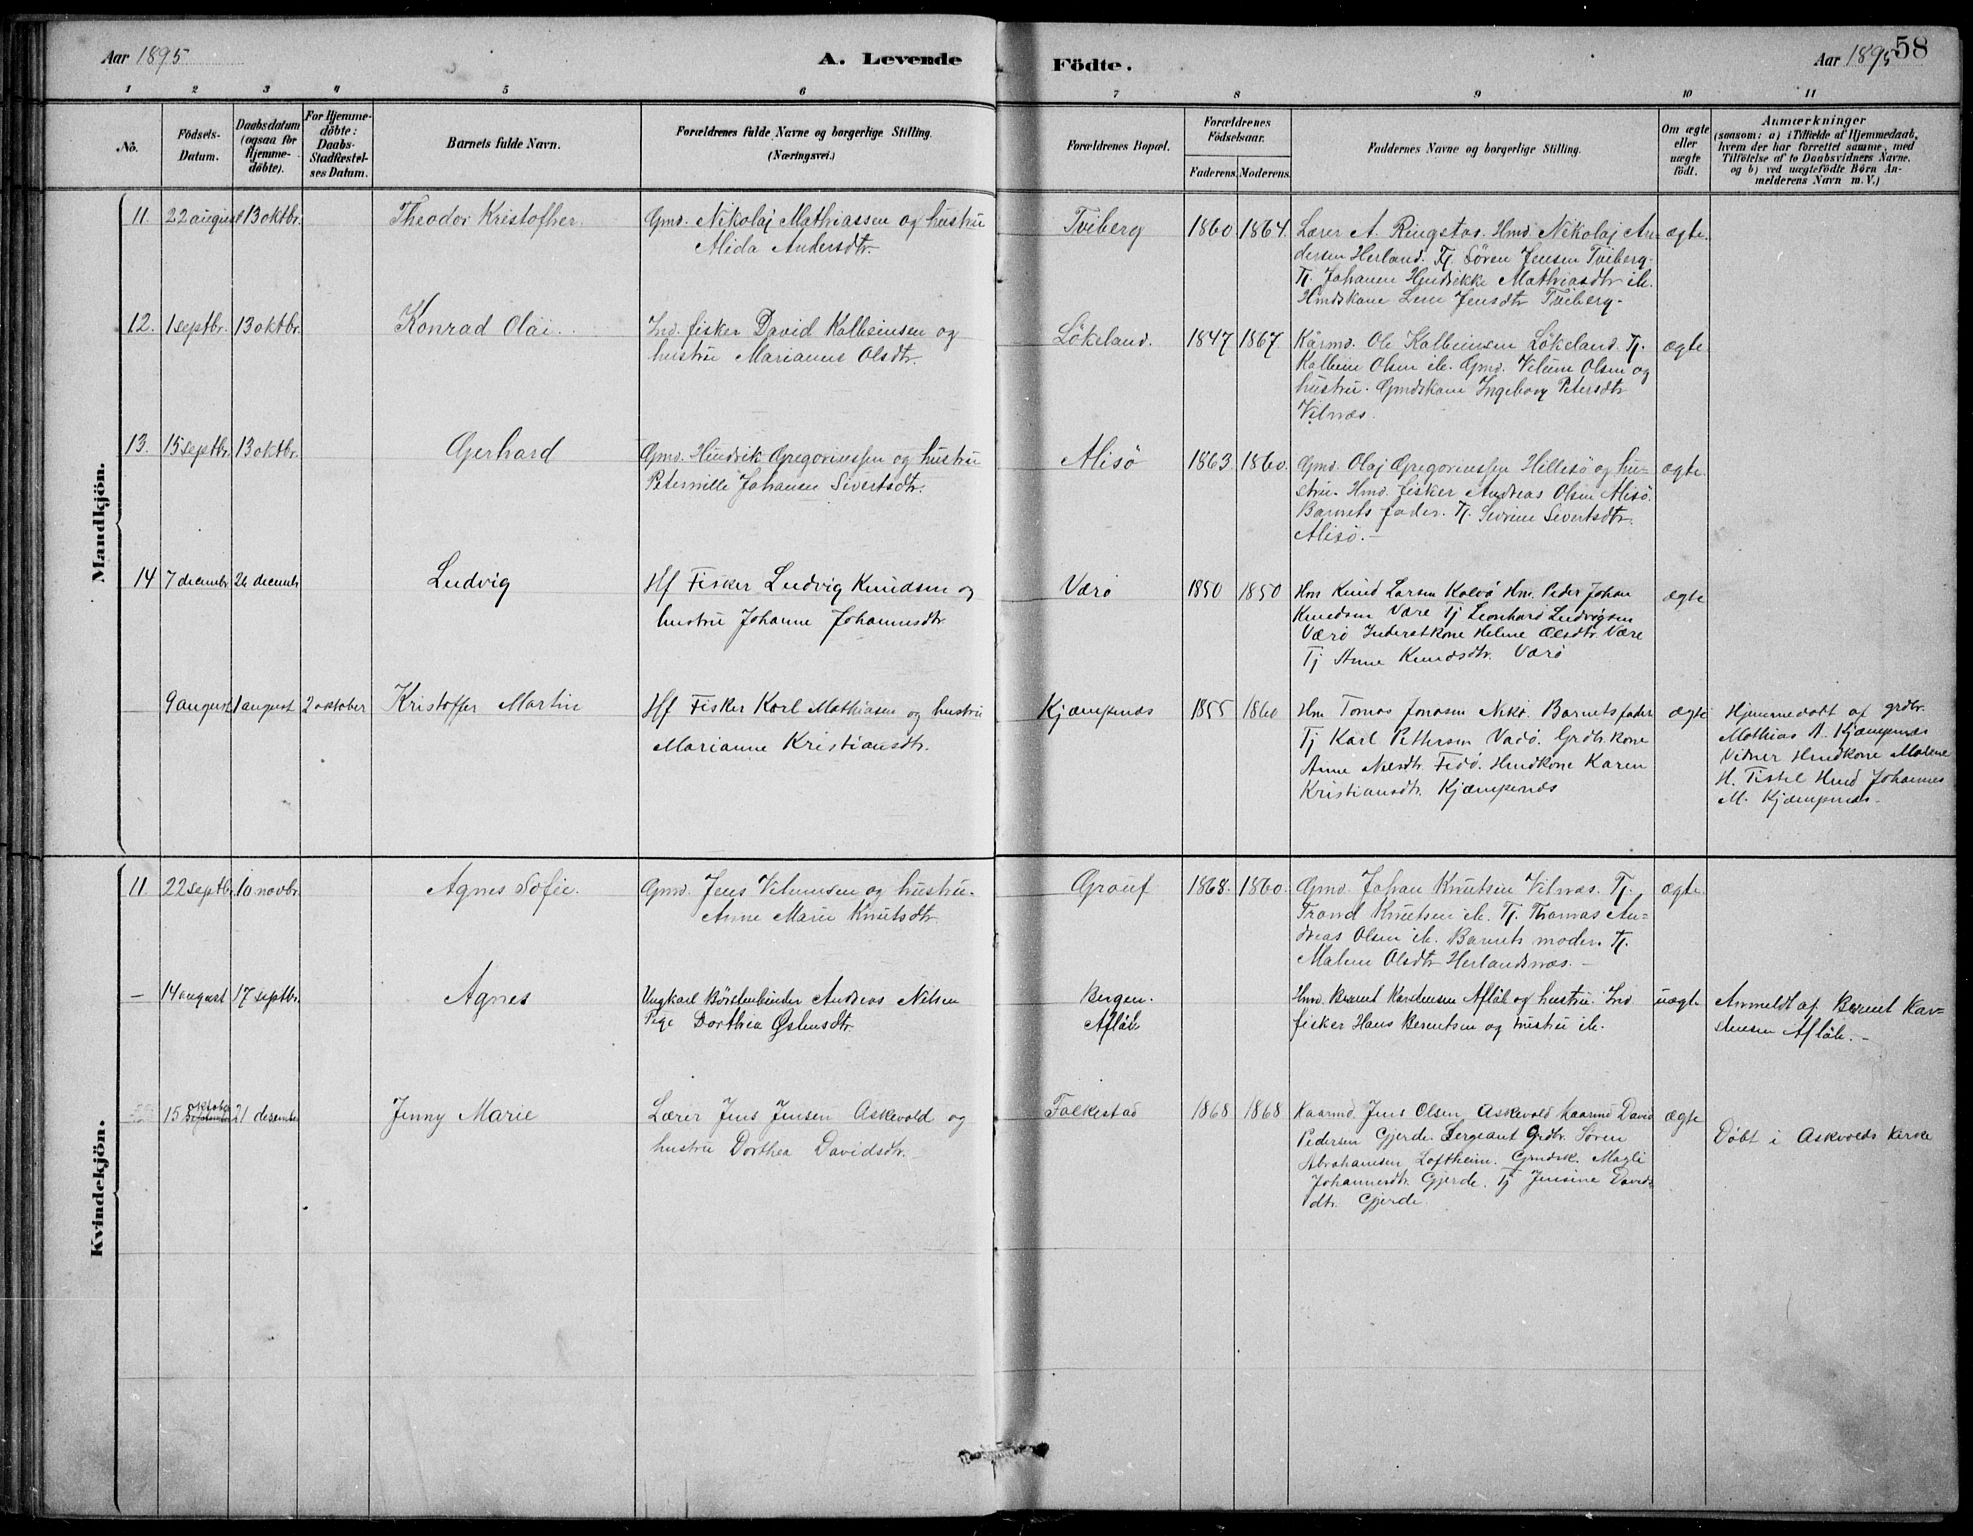 Aar 1895
A. Levende
Födte.
Aar 1895
58
1 2 3 4 5 6 7 8 9 10 11
No.
Födsels-
Datum.
Daabsdatum
(ogsaa for
Hjemme-
döbte).
For Hjemme-
döbte:
Daabs-
Stadfæstel-
ses Datum.
Barnets fulde Navn.
Forældrenes fulde Navne og borgerlige Stilling.
(Næringsvei.)
Forældrenes Bopæl.
Forældrenes
Födselsaar.
Faderens.
Moderens.
Faddernes Navne og borgerlige Stilling.
Om ægte
eller
uægte
födt.
Anmærkninger
(saasom: a) i Tilfælde af Hjemmedaab,
hvem der har forrettet samme, med
Tilföielse af to Daabsvidners Navne,
og b) ved uægtefödte Börn An-
melderens Navn m. V.)
Mandkjön.
11 22 august 13 oktbr. Theodor Kristoffer
Gmd. Nikolaj Mathiassen og hustru
Alida Andersdtr.
Tviberg 1860 1864.
Lærer A. Ringstas. Hmd. Nikolaj An-
dersen Herland. Tj. Sören Jensen Tviberg.
Tj. Johanne Hendrikke Mathiasdtr ib.
Hmdskone Lene Jensdtr Tviberg.
ægte.
12. 1 septbr. 13 oktbr. Konrad Olai.
Ind. fisker David Kolbeinsen og
hustru Marianne Olsdtr.
Lökeland. 1847 1867.
Kårmd. Ole Kolbeinsen Lökeland. Tj.
Kolbein Olsen ib. Gmd. Vilum Olsen og
hustru. Gmdskone Ingeborg Petersdtr
Vilnæs.
ægte
13. 15 septbr. 13 oktbr. Gerhard
Gmd. Hendrik Gregoriussen og hustru
Peternille Johanne Sivertsdtr.
Alisö 1863 1860.
Gmd. Olaj Gregoriussen Hillesö og hu-
stru. Hmd. fisker Andreas Olsen Alisö.
Barnets fader. Tj. Sivrine Sivertsdtr.
Alisö.
ægte.
14 7 decembr 26 decembr Ludvig
Hf Fisker Ludvig Knudsen og
hustru Johanne Johannesdtr.
Værö 1850 1850
Hm Knud Larsen Kalvö Hm. Peder Johan
Knudsen Være Tj Leonhard Ludvigsen
Værö Inderstkone Helene Olsdtr. Være
Tj Anne Knudsdtr. Værö
ægte
9 august 1 august 2 oktober Kristoffer Martin
Hf Fisker Karl Mathiasen og hustru
Marianne Kristiansdtr.
Kjæmpenæs 1855 1860
Hm Tomas Jonasen Nekö. Barnets fader
Tj Karl Pettersen Vadö. Grdbrkone
Anne Nilsdtr. Fedö. Hmdkone Karen
Kristiansdtr. Kjæmpenæs
ægte
Hjemmedöbt af grdbr.
Mathias A. Kjæmpenæs
Vidner Hmdkone Malene
H. Tistel Hmd Johannes
M. Kjæmpenæs.
Kvindekjön.
11 22 septbr. 10 novbr. Agnes Sofie.
Gmd. Jens Vilumsen og hustru.
Anne Marie Knutsdtr.
Grouf 1868. 1860.
Gmd. Johan Knutsen Vilnæs. Tj.
Trond Knutsen ib. Tj. Thomas An-
dreas Olsen ib. Barnets moder. Tj.
Malene Olsdtr Herlandsnæs.
ægte.
– 14 august 17 septbr. Agnes
Ungkarl Börstenbinder Andreas Nilsen
Pige Dorthea Østensdtr.
Bergen.
Afløb
Hmd. Bernt Karstensen Afløb og hustru. Ind
fisker Hans Berentsen og hustru ib.
uægte
Anmeldt af Bernt Kar-
stensen Afløb.
15 oktober 21 desember Jenny Marie
Lærer Jens Jensen Askvold og
hustru Dorthea Davidsdtr.
Folkestad 1868 1868
Kaarmd. Jens Olsen Askvold kaarmd David
Pedersen Gjerde. Sergeant Grdbr. Sören
Abrahamsen Loftheim. Gmdsk. Magli
Johannesdtr. Gjerde. Tj Jensine Davids
dtr. Gjerde.
ægte
Döbt i Askvolds Kirke